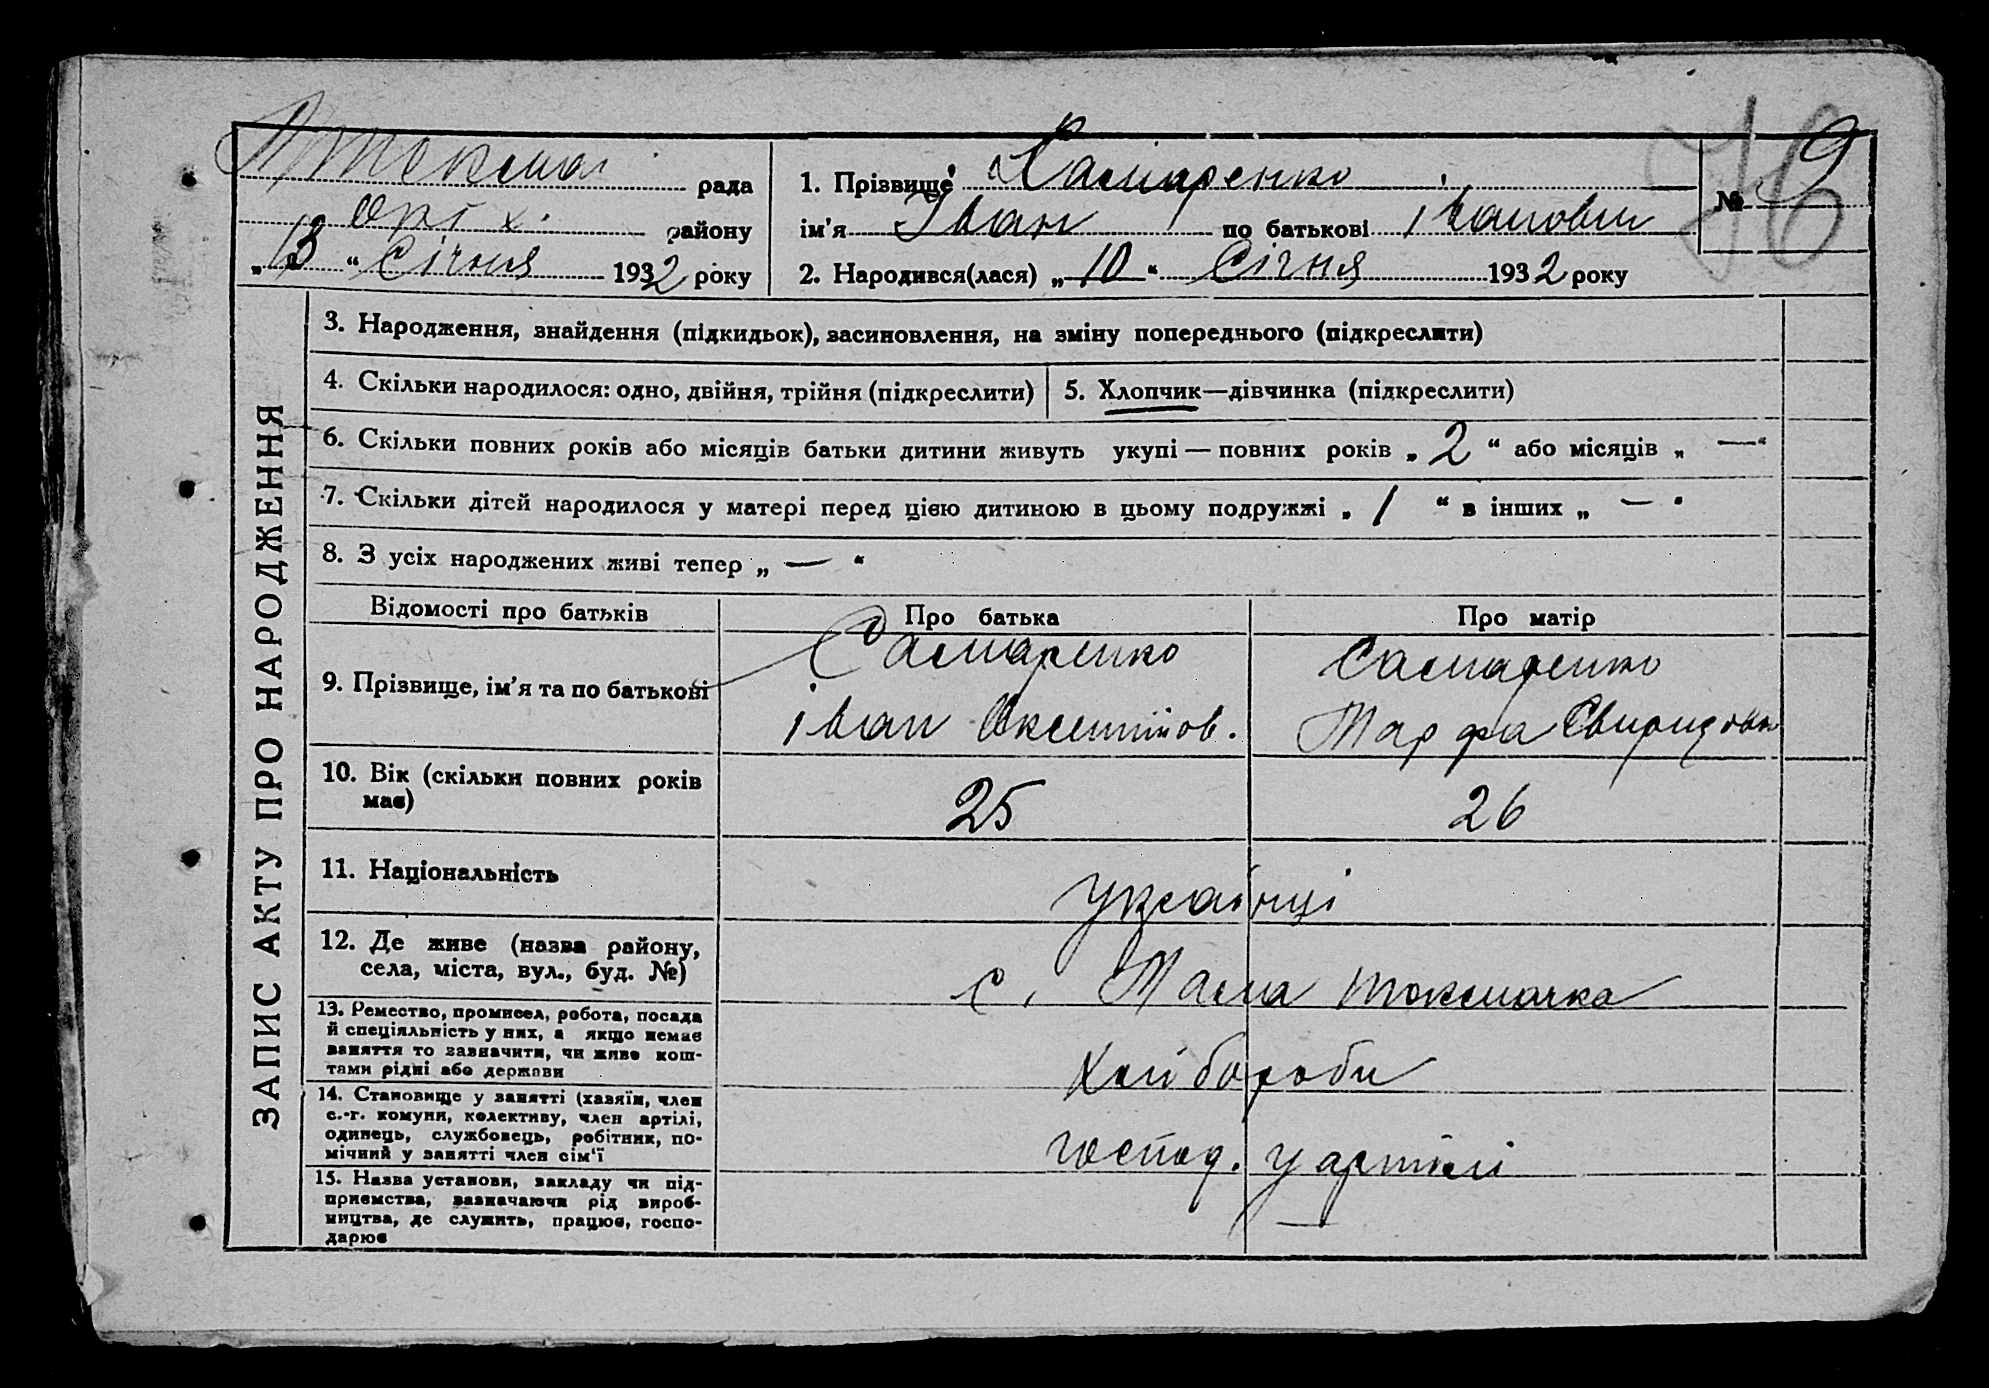 М Токмац. рада
Оріх. району
„13“ Січня 1932 року
1. Прізвище Самаренко
ім'я Іван по батькові іванович
2. Народився(лася) „10“ Січня 1932 року
№ 9
76
ЗАПИС АКТУ ПРО НАРОДЖЕННЯ
3. Народження, знайдення (підкидьок), засиновлення, на зміну попереднього (підкреслити)
4. Скільки народилося: одно, двійня, трійня (підкреслити)
5. Хлопчик—дівчинка (підкреслити)
6. Скільки повних років або місяців батьки дитини живуть укупі — повних років „2“ або місяців „—“
7. Скільки дітей народилося у матері перед цією дитиною в цьому подружжі „1“ в інших „—“
8. З усіх народжених живі тепер „—“
Відомості про батьків Про батька Про матір
9. Прізвище, ім'я та по батькові
Самаренко
іван
Самаренко
Марфа Свиридовн
10. Вік (скільки повних років
має)
25 26
11. Національність
українці
12. Де живе (назва району,
села, міста, вул., буд. №)
с. Мала токмачка
13. Ремество, промисел, робота, посада
й спеціяльність у них, а якщо немає
заняття то зазначити, чи живе кош-
тами рідні або держави
хлібороби
14. Становище у занятті (хазяїн, член
с.-г. комуни, колективу, член артілі,
одинець, службовець, робітник, по-
мічний у занятті член сім'ї
господ. у артілі
15. Назва установи, закладу чи під-
приємства, зазначаючи рід вироб-
ництва, де служить, працює, госпо-
дарює
—